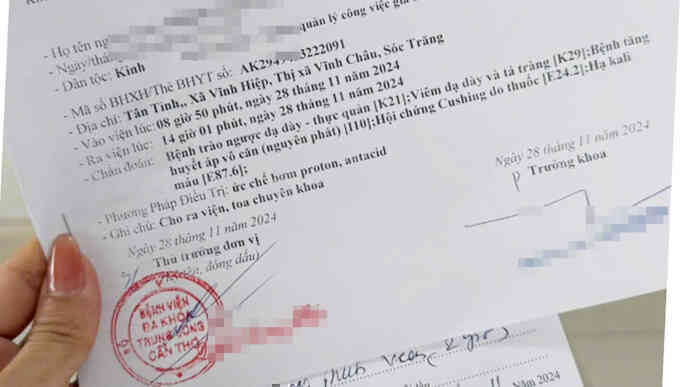 - Họ tên ng quản lý công việc gia
- Ngày/thán
- Dân tộc: Kinh
- Mã số BHXH/Thẻ BHYT số:
- Địa chỉ: Tân Tỉnh,, Xã Vĩnh Hiệp, Thị xã Vĩnh Châu, Sóc Trăng
- Vào viện lúc: 08 giờ 50 phút, ngày 28 tháng 11 năm 2024
- Ra viện lúc: 14 giờ 01 phút, ngày 28 tháng 11 năm 2024
- Chẩn đoán: Bệnh trào ngược dạ dày - thực quản [K21];Viêm dạ dày và tá tràng [K29];Bệnh tăng
huyết áp vô căn (nguyên phát) [I10];Hội chứng Cushing do thuốc [E24.2];Hạ kali
máu [E87.6];
- Phương Pháp Điều Trị: ức chế bơm proton, antacid
- Ghi chú: Cho ra viện, toa chuyên khoa
Ngày 28 tháng 11 năm 2024
Thủ trưởng đơn vị
(Ký tên, đóng dấu)
Ngày 28 tháng 11 năm 2024
Trưởng khoa
BỆNH VIỆN
ĐA KHOA
TRUNG ƯƠNG
CẦN THƠ
11 năm 2024